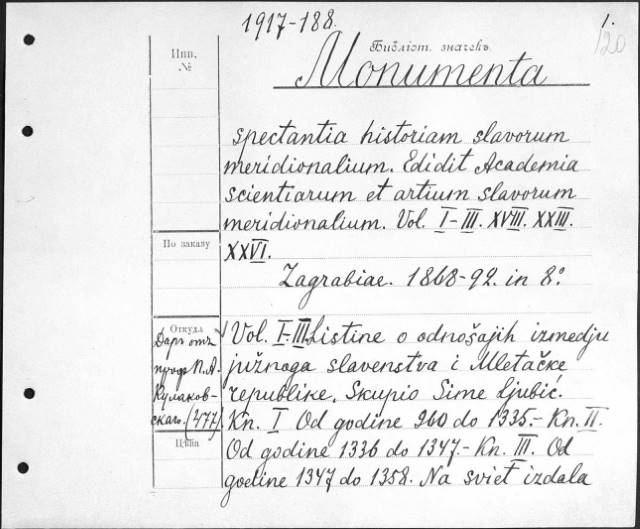 1917-188.
1.
20
Инв.
№
Библіот. значекъ.
Monumenta
spectantia historiam slavorum
meridionalium. Edidit Academia
scientiarum et artium slavorum
meridionalium. Vol. I-III. XVIII. XXIII.
XXVI.
По заказу
Zagrabiae. 1868-92. in 8°.
Откуда
Даръ отъ
проф. П. А.
Кулаков-
скаго. (477)
Цѣна
Vol. I-III Listine o odnošajih izmedju
južnoga slavenstva i Mletačke
republike. Skupio Sime Ljubić.
Kn. I Od godine 960 do 1335.- Kn. II.
Od godine 1336 do 1347.- Kn. III. Od
godine 1347 do 1358. Na sviet izdala